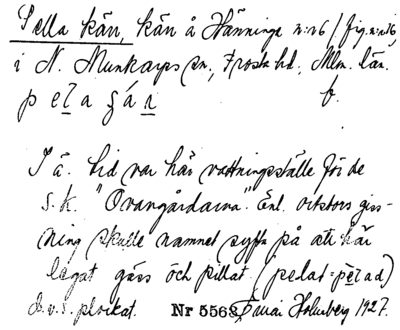 Pella kän, kän å Hänninge n:r 6 / fig. n:r 16,
i N. Munkarps sn., Frosta hd., Mlm. län.
p e l a ʂ á n f.
I ä. tid var här vattningsställe för de
s.k. "Ovangårdarna". Enl. ortsbors giss-
ning skulle namnet syfta på att här
legat gäss och pillat (pelat = pelad)
d.v.s. plockat. Nr 5563 Ernst Holmberg 1927.